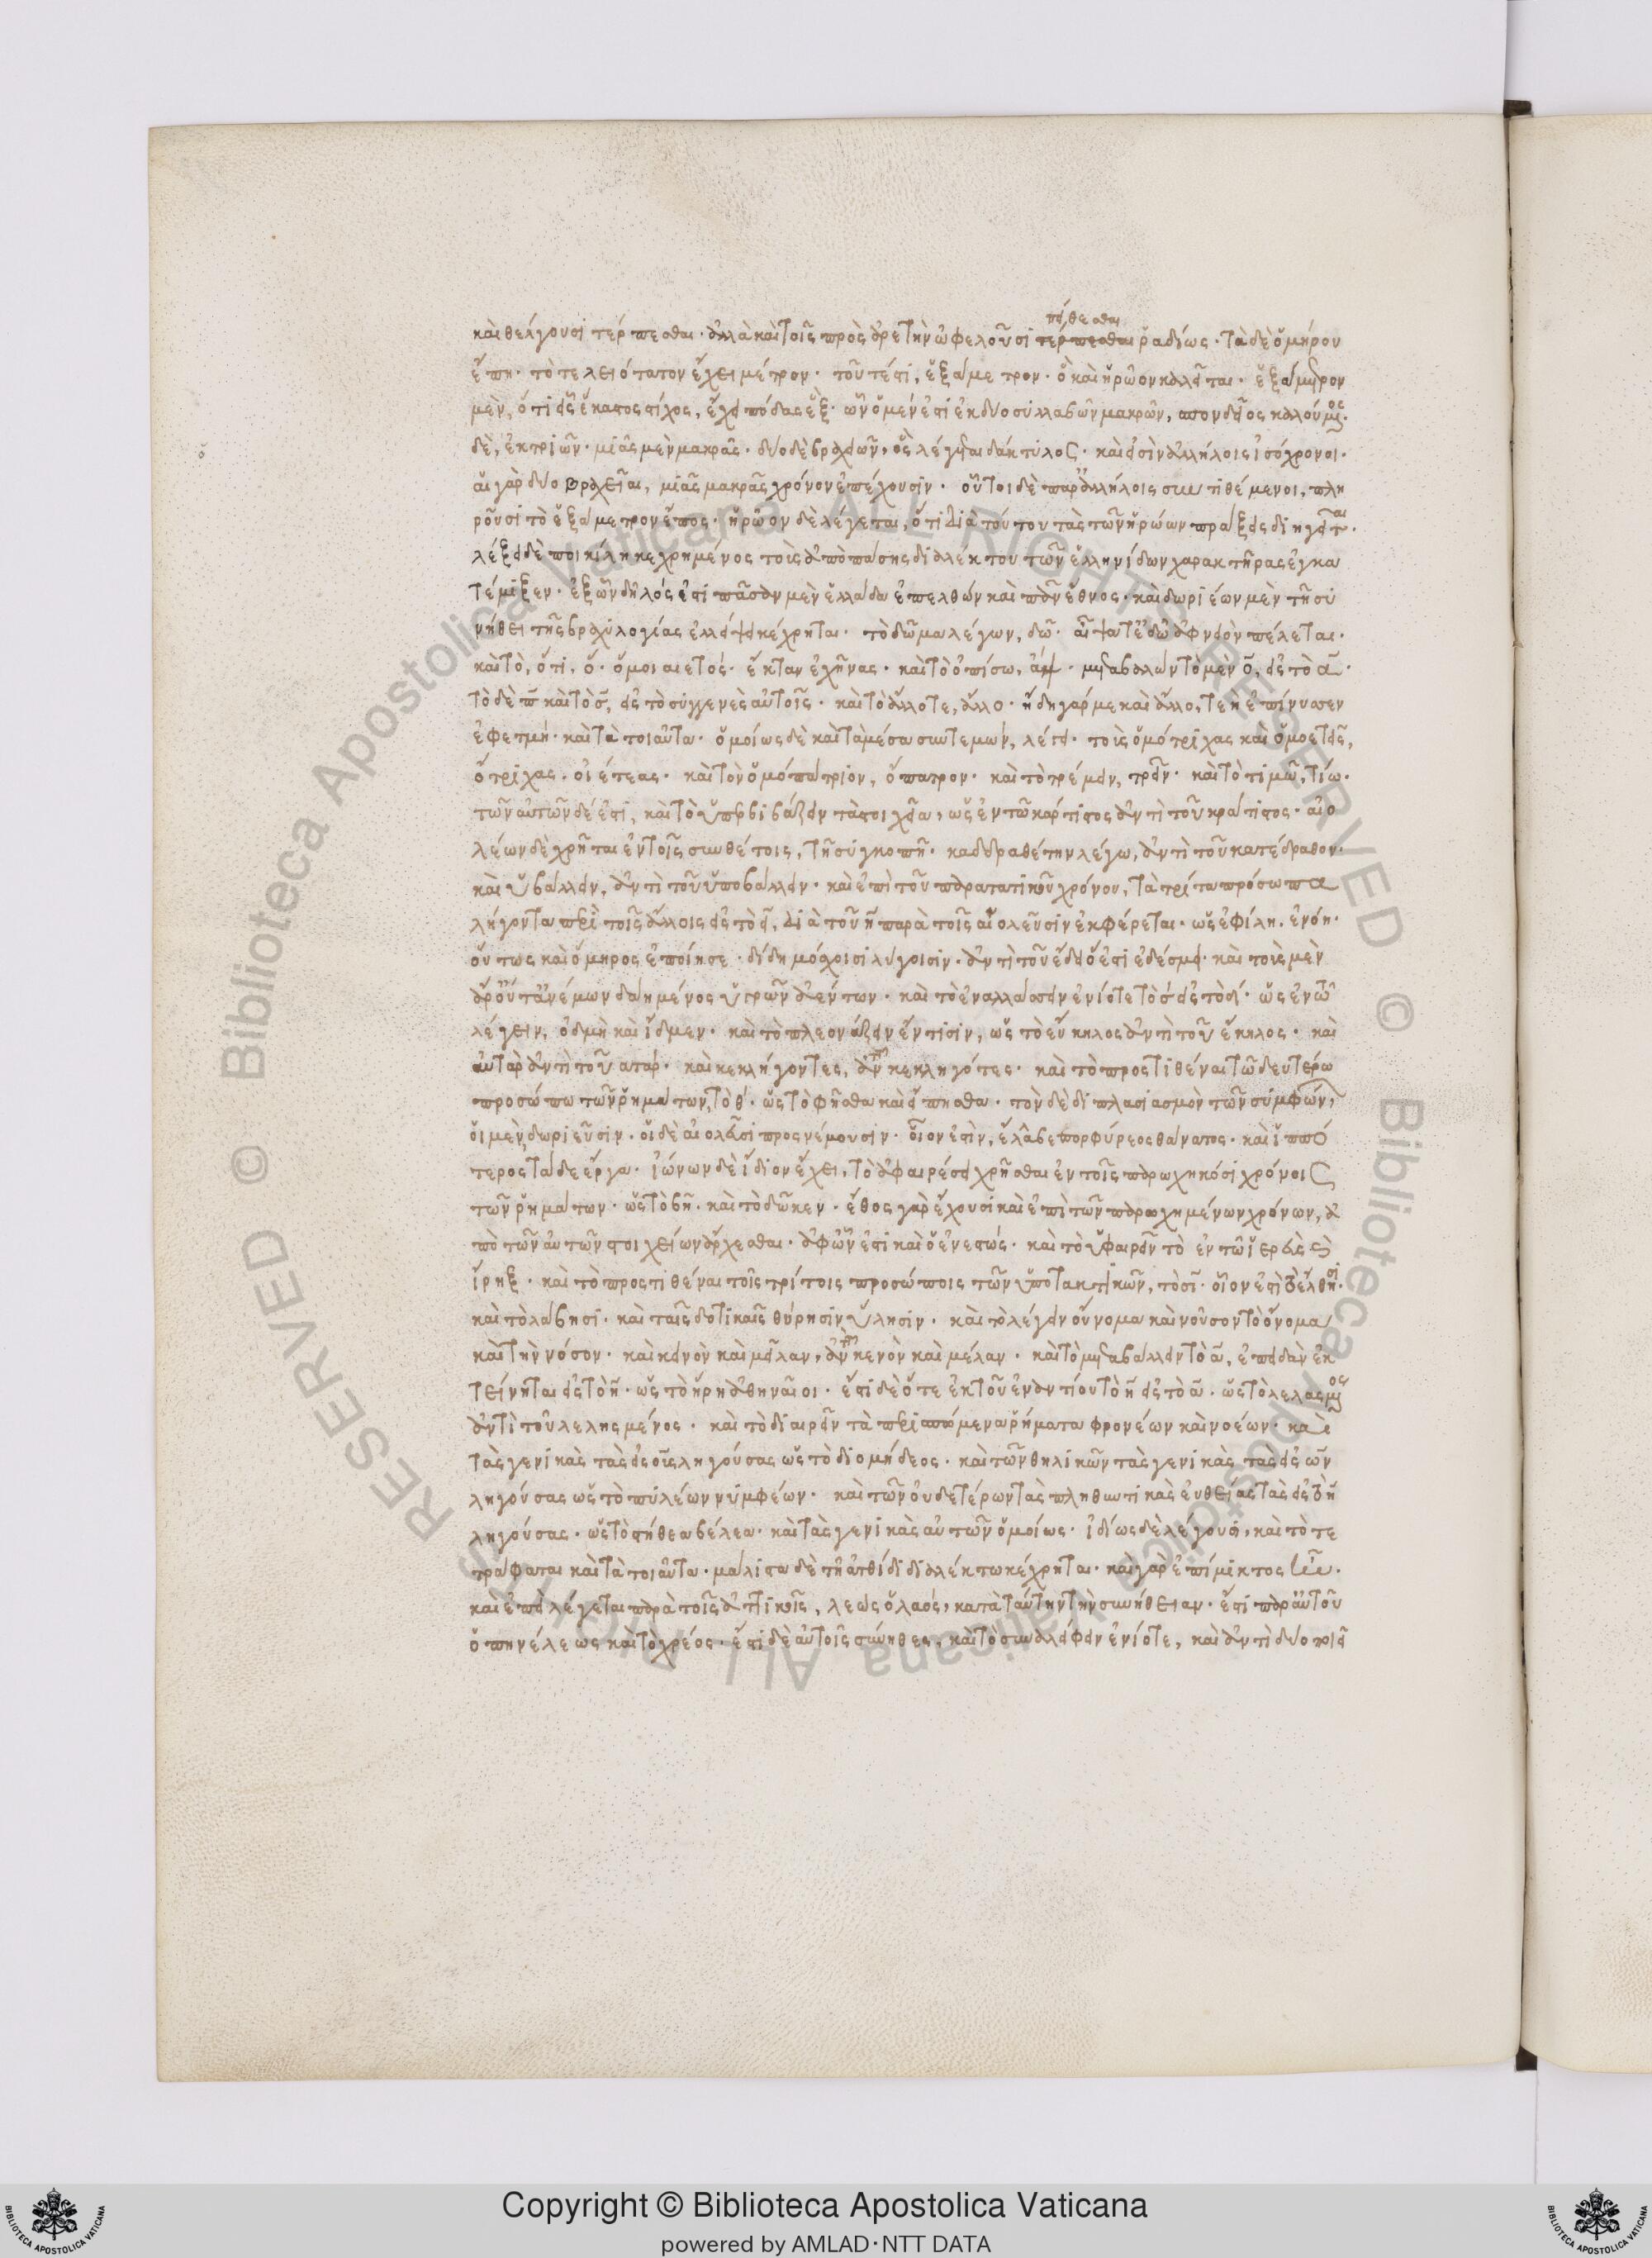 πείθεσθαι
καὶ θέλγουσι τέρπεσθαι· ἀλλὰ καὶ τοῖς πρὸς ἀρετὴν ὠφελοῦσι τέρπεσθαι ῥαδίως· τὰ δὲ ὁμήρου
ἔπη· τὸ τελειότατον ἔχει μέτρον· τουτέστι, ἑξάμετρον· ὃ καὶ ἡρῶον καλεῖται· ἑξάμετρον
μὲν, ὅτι εἷς ἕκαστος στίχος, ἔχει πόδας ἓξ· ὧν ὁ μέν ἐστι ἐκ δυο συλλαβῶν μακρῶν, σπονδεῖος καλούμενος·
δὲ, ἐκ τριῶν· μιᾶς μὲν μακρᾶς· δύο δὲ βραχειῶν, ὃς λέγεται δάκτυλος· καὶ εἰσὶν ἀλλήλοις ἰσόχρονοι·
αἱ γὰρ δύο βραχεῖαι, μιᾶς μακρᾶς χρόνον ἐπέχουσιν· οὗτοι δὲ παρ᾽ ἀλλήλοις συντιθέμενοι, πλη
ροῦσι τὸ ἑξάμετρον ἔπος· ἡρῶον δὲ λέγεται, ὅτι διὰ τούτου τὰς τῶν ἡρώων πράξεις διηγεῖται·
λέξει δὲ ποικίλη κεχρημένος τοὺς ἀπὸ πάσης διαλέκτου τῶν ἑλληνίδων χαρακτῆρας ἐγκα
τέμιξεν· ἐξ ὧν δῆλός ἐστι πᾶσαν μὲν ἑλλάδα ἐπελθών καὶ πᾶν ἔθνος· καὶ δωριέων μὲν τῆ συ
νήθει τῆς βραχυλογίας ἐλλείψει κέχρηται· τὸ δῶμα λέγων, δῶ· αἶψα τέ ἑ δῶ ἀφνειὸν πέλεται·
καὶ τὸ, ὅτι, ὅ· ὅ μοι αἰετός· ἔκταν ἐχῆνας· καὶ τὸ ὀπίσω, ἄψ· μεταβαλὼν τὸ μὲν ō, εἰς τὸ ᾱ·
τὸ δὲ π̄ καὶ τὸ σ̄, εἰς τὸ συγγενὲς αὐτοῖς· καὶ τὸ ἄλλοτε, ἄλλο· ἤδη γάρ με καὶ ἄλλο, τεὴ ἐπίνυσσεν
ἐφετμή· καὶ τὰ τοιαῦτα· ὁμοίως δὲ καὶ τὰ μέσα συντεμών, λέγει· τοὺς ὁμότριχας καὶ ὁμοετεῖς,
ὄτριχας· οἰέτεας· καὶ τὸν ὁμόπατριον, ὄπατρον· καὶ τὸ τρέμειν, τρεῖν· καὶ τὸ τιμῶ, τίω·
τῶν αὐτῶν δέ ἐστι, καὶ τὸ ὑπερβιβάζειν τὰ στοιχεῖα, ὡς ἐν τῶ κάρτιστος ἀντὶ τοῦ κράτιστος· αἰο
λέων δὲ χρῆται ἐν τοῖς συνθέτοις, τῆ συγκοπῆ· καδδραθέτην λέγω, ἀντὶ τοῦ κατέδραθον·
καὶ ὑβάλλειν, ἀντὶ τοῦ ὑποβάλλειν· καὶ ἐπὶ τοῦ παρατατικοῦ χρόνου, τὰ τρίτα πρόσωπα
λήγοντα περὶ τοῖς ἄλλοις εἰς τὸ ει, διὰ τοῦ η̄ παρὰ τοῖς αἰολεῦσιν ἐκφέρεται· ὡς ἐφίλη, ἐνόη·
οὕτως καὶ ὅμηρος ἐποίησε· δίδη μόσχοισι λύγοισιν· ἀντὶ τοῦ ἔδει ὅ ἐστι ἐδέσμει· καὶ τοὺς μὲν
ἄρ᾽ οὔτ᾽ ἀνέμων δαημένος ὑγρῶν ἀέντων· καὶ τὸ ἐναλλάσσειν ἐνίοτε τὸ σ̄ εἰς τὸ δ̄· ὡς ἐν τῶ
λέγειν, ὀδμὴ καὶ ἴδμεν· καὶ τὸ πλεονάζειν ἔν τισιν, ὡς τὸ εὔκηλος ἀντὶ τοῦ ἕκηλος· καὶ
αὐτὰρ ἀντὶ τοῦ ἀτάρ· καὶ κεκλήγοντες, ἀντὶ τοῦ κεκληγότες· καὶ τὸ προστιθέναι τῶ δευτέρω
προσώπω τῶν ῥημάτων, τὸ θ̄· ὡς τὸ φῆσθα καὶ εἴπησθα· τὸν δὲ διπλασιασμὸν τῶν συμφώνων
οἱ μὲν δωριεῦσιν· οἱ δὲ αἰολεῦσι προσνέμουσιν· οἷον ἐστὶν, ἔλλαβε πορφύρεος θάνατος· καὶ ὁππό
τερος τάδε ἔργα· ἰώνων δὲ ἴδιον ἔχει, τὸ ἀφαιρέσει χρῆσθαι ἐν τοῖς παρωχηκόσι χρόνοις
τῶν ῥημάτων· ὡς τὸ βῆ· καὶ τὸ δῶκεν· ἔθος γὰρ ἔχουσι καὶ ἐπὶ τῶν παρωχημένων χρόνων, ἀ
πὸ τῶν αὐτῶν στοιχείων ἄρχεσθαι· ἀφ᾽ ὧν ἐστι καὶ ὁ ἐνεστώς· καὶ τὸ ὑφαιρεῖν τὸ ἐν τῶ ἱερεὺς
ἴρηξ· καὶ τὸ προστιθέναι τοῖς τρίτοις προσώποις τῶν ὑποτακτικῶν, τὸ σι· οἷον ἐστὶ τὸ ἔλθησι·
καὶ τὸ λάβησι· καὶ ταῖς δοτικαῖς θύρησιν ὕλησιν· καὶ τὸ λέγειν οὔνομα καὶ νοῦσον τὸ ὄνομα
καὶ τὴν νόσον· καὶ κεινὸν καὶ μεῖλαν, ἀντὶ τοῦ κενὸν καὶ μέλαν· καὶ τὸ μεταβάλλειν τὸ ᾱ, ἐπειδὰν ἐκ
τείνηται εἰς τὸ η̄· ὡς τὸ ἤρη ἀθηναῖοι· ἔστι δὲ ὅτε ἐκ τοῦ ἐναντίου τὸ η̄ εἰς τὸ ᾱ· ὡς τὸ λελασμένος
ἀντὶ τοῦ λελησμένος· καὶ τὸ διαιρεῖν τὰ περισπώμενα ῥήματα φρονέων καὶ νοέων· καὶ
τὰς γενικὰς τὰς εἰς οῡς ληγούσας ὡς τὸ διομήδεος· καὶ τῶν θηλικῶν τὰς γενικὰς τὰς εἰς ων
ληγούσας ὡς τὸ πυλέων νυμφέων· καὶ τῶν οὐδετέρων τὰς πληθυντικὰς εὐθείας τὰς εἰς τὸ η̄
ληγούσας· ὡς τὸ στήθεα βέλεα· καὶ τὰς γενικὰς αὐτῶν ὁμοίως· ἰδίως δὲ λέγουσι, καὶ τὸ τε
τράφαται καὶ τὰ τοιαῦτα· μάλιστα δὲ τῆ ἀτθίδι διαλέκτω κέχρηται· καὶ γὰρ ἐπίμικτος ἦν·
καὶ ἐπεὶ λέγεται παρὰ τοῖς ἀττικοῖς, λεὼς ὁ λαός, κατὰ ταύτην τὴν συνήθειαν· ἔστι παρ᾽ αὐτοῦ
ὁ πηνέλεως καὶ τὸ χρέος· ἔστι δὲ αὐτοῖς σύνηθες, καὶ τὸ συναλείφειν ἐνίοτε, καὶ ἀντὶ δύο ποιεῖ
Copyright © Biblioteca Apostolica Vaticana
powered by AMLAD·NTT DATA